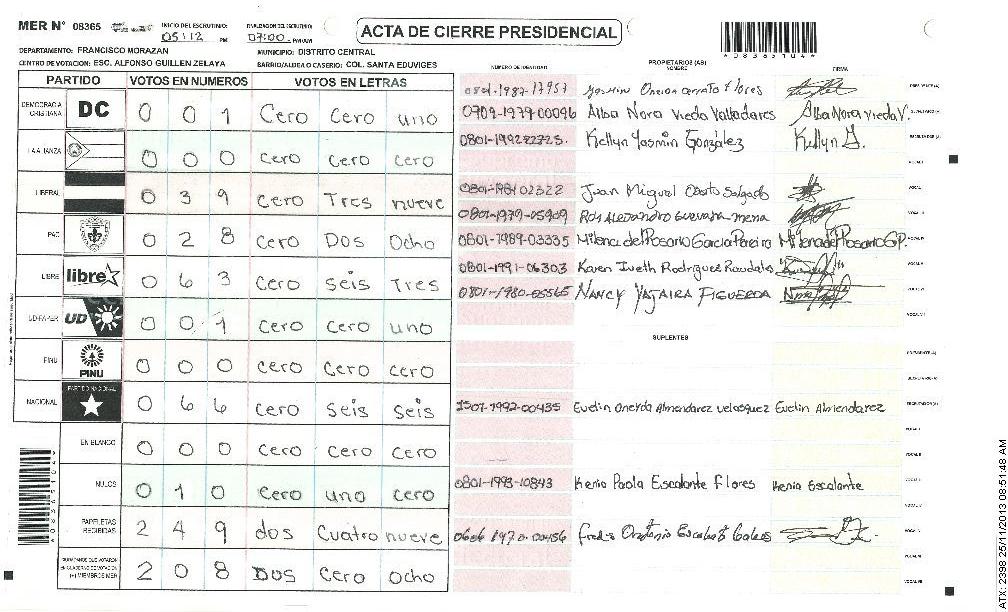 MER N° 08365
INICIO DEL ESCRUTINIO:
05:12 PM
FINALIZACION DEL ESCRUTINIO:
07:00 PM/AM
ACTA DE CIERRE PRESIDENCIAL
A08365104
DEPARTAMENTO: FRANCISCO MORAZAN
MUNICIPIO: DISTRITO CENTRAL
CENTRO DE VOTACION: ESC. ALFONSO GUILLEN ZELAYA
BARRIO/ALDEA O CASERIO: COL. SANTA EDUVIGES
NUMERO DE IDENTIDAD
PROPIETARIOS (AS)
NOMBRE
FIRMA
PARTIDO VOTOS EN NUMEROS VOTOS EN LETRAS
DEMOCRACIA CRISTIANA DC 0 0 1 Cero Cero uno
LA ALIANZA 0 0 0 Cero Cero Cero
LIBERAL 0 3 9 Cero Tres nueve
PAC 0 2 8 Cero Dos Ocho
LIBRE libre 0 6 3 Cero seis Tres
UD-FAPER UD 0 0 1 Cero Cero uno
PINU PINU 0 0 0 Cero Cero Cero
NACIONAL PARTIDO NACIONAL 0 6 6 Cero seis seis
EN BLANCO 0 0 0 Cero Cero Cero
NULOS 0 1 0 Cero uno Cero
PAPELETAS RECIBIDAS 2 4 9 dos Cuatro nueve
CIUDADANOS QUE VOTARON EN CUADERNO DE VOTACION (+) MIEMBROS MER 2 0 8 Dos Cero Ocho
0801-1987-17957 Flores PRESIDENTE (A)
0709-1979-00096 Alba Nora Vieda Valladares Alba Nora Vieda V. SECRETARIO (A)
0801-199222725. Kellyn Yasmin González Kellyn G. ESCRUTADOR (A)
VOCAL I
Juan Miguel Salgado
0801-1979-05909
0801-1989-03335 Milena del Rosario Garcia Pereira Milena del Rosario G P.
0801-1991-06303 Karen Iveth Rodriguez Raudales
0801-1980-05565 NANCY YAJAIRA FIGUEROA
SUPLENTES
PRESIDENTE (A)
SECRETARIO (A)
1501-1992-00435 Evelin Onerda Almendarez velasquez Evelin Almendarez ESCRUTADOR (A)
VOCAL I
VOCAL II
0801-1993-10843 Kenia Paola Escalante Flores Kenia Escalante
A08365104
ATX: 2398 25/11/2013 08:51:48 AM